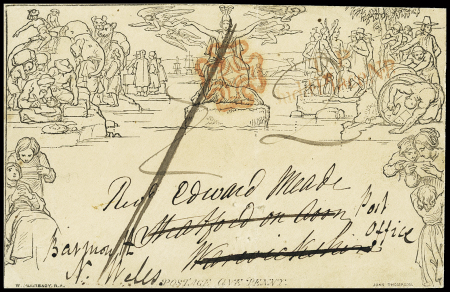 Revd Edward Meade
Stratford on Avon Post
Barmouth Warwickshire Office
N. Wales
POSTAGE ONE PENNY.
W. MULREADY, R.A. JOHN THOMPSON